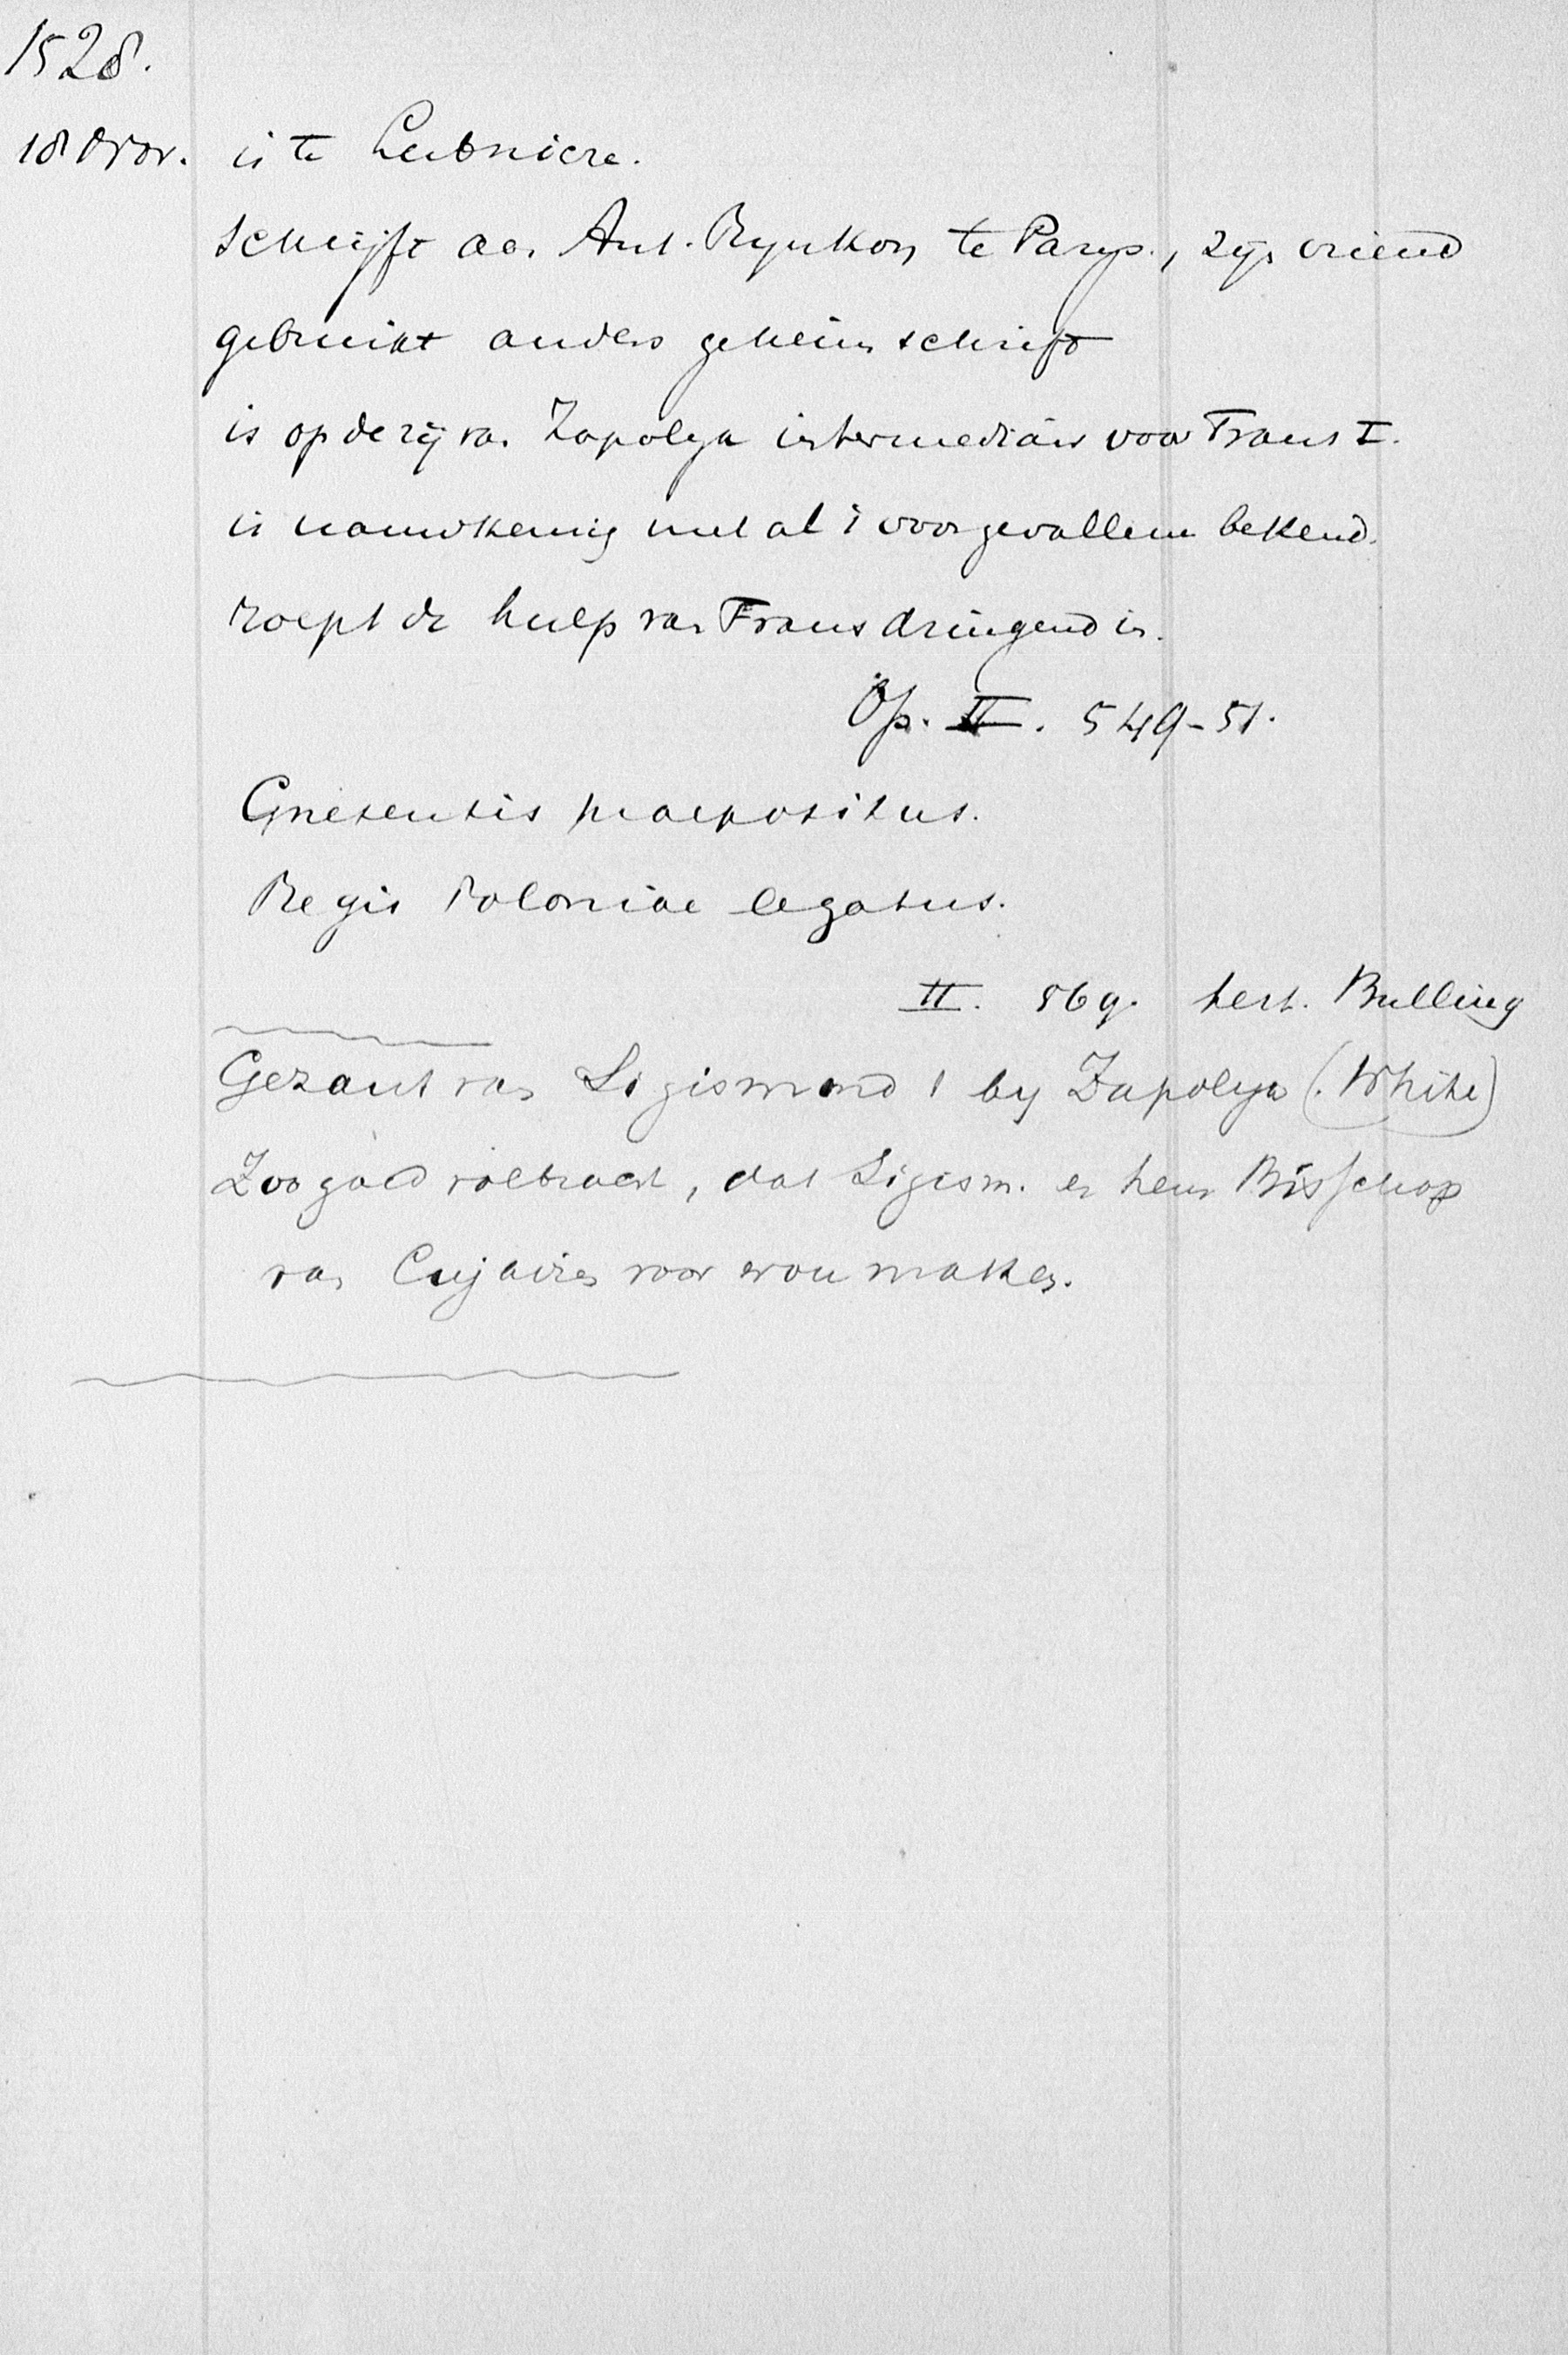 1528.
18 Nov. is te Leibnicze.
schrijft aan Ant. Rynkon te Parys., zijn vriend
gebruikt anders geheim schrift
is op de zij van Zapolya intermediair voor Frans I.
is nauwkeurig met al 't voorgevallene bekend.
roept de hulp van Frans dringend in.
Op. II. 549-51.
Gnesensis praepositus.
Regis Poloniae legatus.
II. 569. hert. Bulling
Gezant van Sigismond I by Zapolya (White)
Zoo goed volbracht, dat Sigism. er hem Bisschop
van Cujavien voor wou maken.